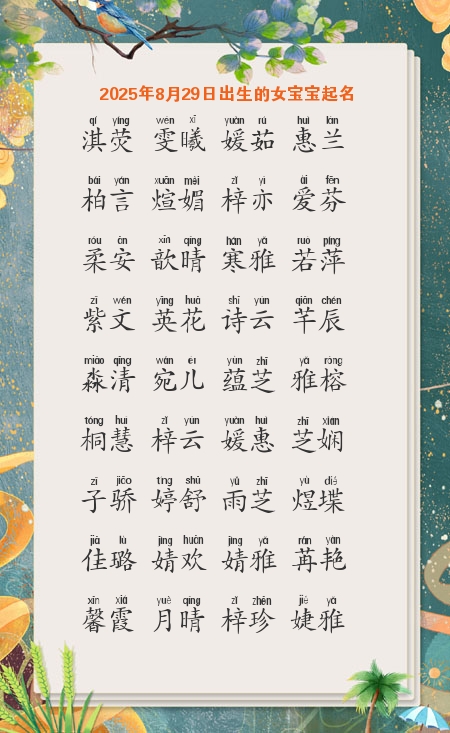 2025年8月29日出生的女宝宝起名
qí yíng wén xī yuàn rú huì lán
淇荧 雯曦 媛茹 惠兰
bǎi yán xuān mèi zǐ yì ài fēn
柏言 煊媚 梓亦 爱芬
róu ān xīn qíng hán yǎ ruò píng
柔安 歆晴 寒雅 若萍
zǐ wén yīng huā shī yún qiān chén
紫文 英花 诗云 芊辰
miǎo qīng wǎn ér yùn zhī yǎ róng
淼清 宛儿 蕴芝 雅榕
tóng huì zǐ yún yuàn huì zhī xián
桐慧 梓云 媛惠 芝娴
zǐ jiāo tíng shū yǔ zhī yù dié
子骄 婷舒 雨芝 煜堞
jiā lù jìng huān jìng yǎ rǎn yàn
佳璐 婧欢 婧雅 苒艳
xīn xiá yuè qíng zǐ zhēn jié yǎ
馨霞 月晴 梓珍 婕雅